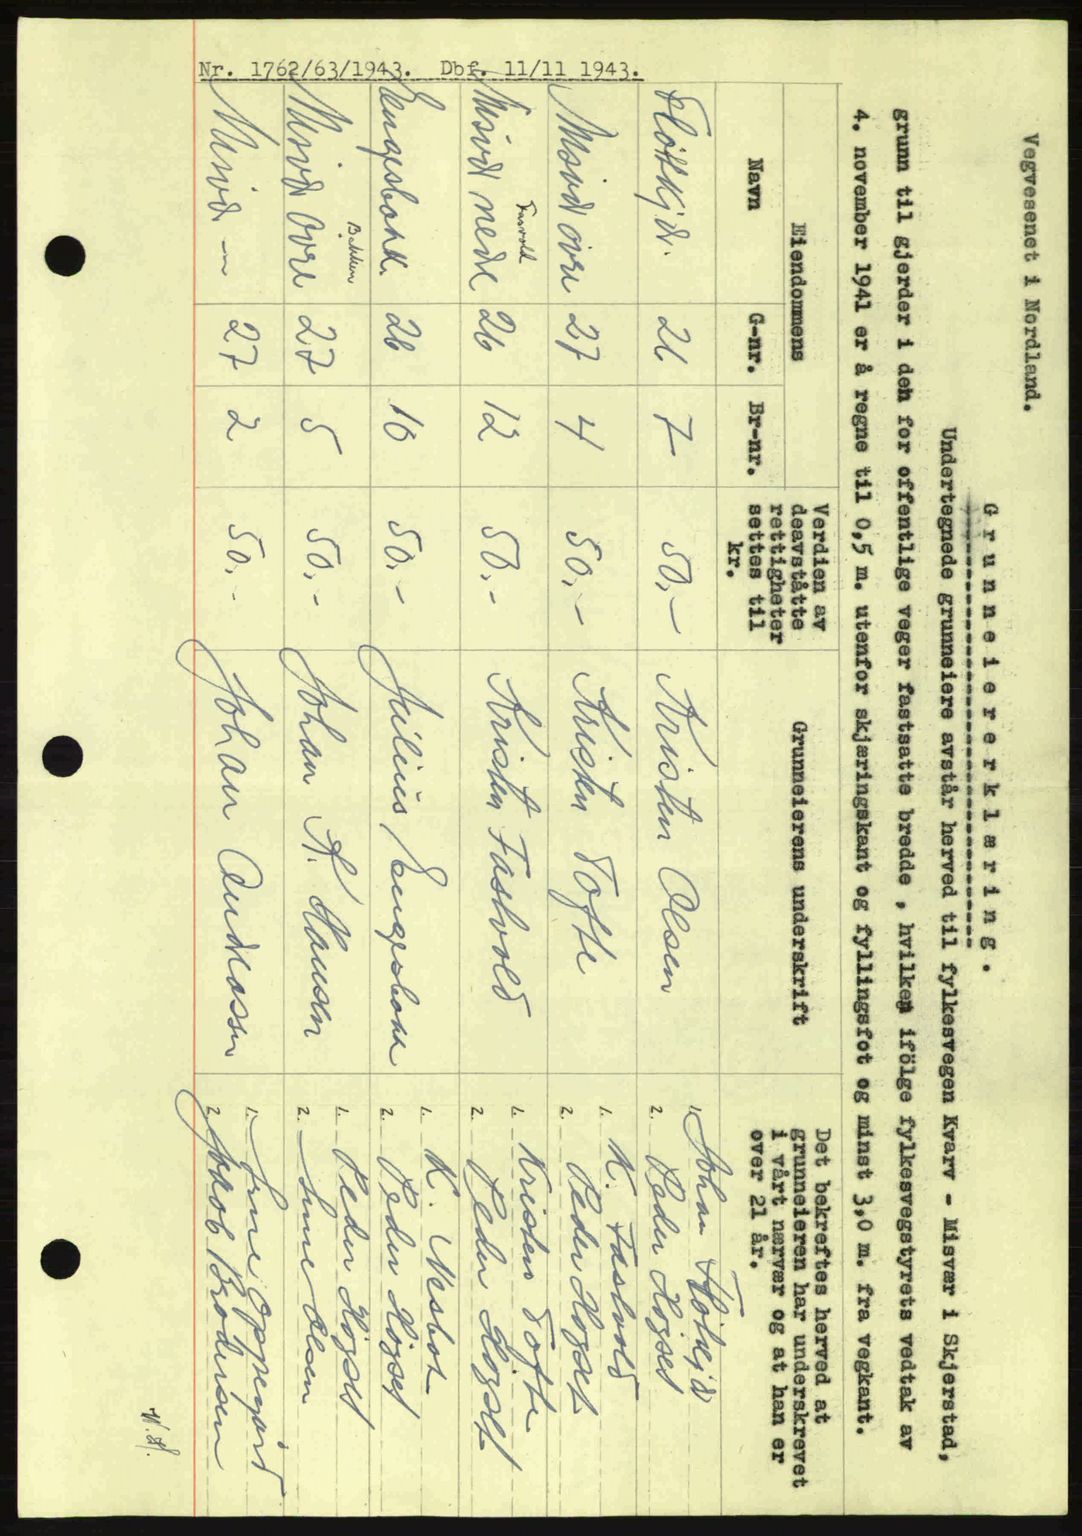 Nr. 1762/63/1943. Dbf. 11/11 1943.
Vegvesenet i Nordland.
G r u n n e i e r e r k l æ r i n g .
Undertegnede grunneiere avstår herved til fylkesvegen Kvarv - Misvær i Skjerstad,
grunn til gjerder i den for offentlige veger fastsatte bredde , hvilken ifölge fylkesvegstyrets vedtak av
4. november 1941 er å regne til 0,5 m. utenfor skjæringskant og fyllingsfot og minst 3,0 m. fra vegkant.
Eiendommens
Navn G-nr. Br-nr.
Verdien av
deavståtte
rettigheter
settes til
kr.
Grunneierens underskrift
Det bekreftes herved at
grunneieren har underskrevet
i vårt nærvær og at han er
over 21 år.
26 7 50,- Kristen Olsen 1. Johan
2. Peder Högset
Misvær övre 27 4 50,- Kristen Tofte 1. K. Fastvold
2. Peder Högset
Fasvold
Misvær nedre 26 12 50.- Kristen Fastvold 1. Kristen Tofte
2. Peder Högset
Engesbakk. 26 16 50.- Julius Engesbakk 1. K. Nesbak
2. Peder Högset
Bakken
Misvær övre 27 5 50,- Johan A. Hansen 1. Peder Högset
2. Olsen
Misvær - 27 2 50.- Johan Andreassen 1. Oppegård
2. Jakob Brodersen
W.H.